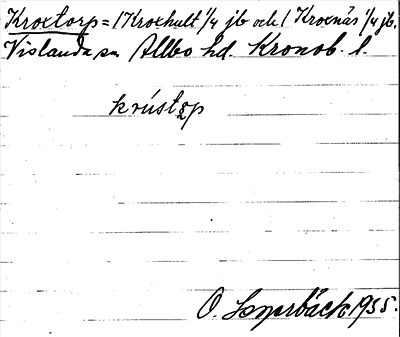 Kroxtorp = /Kroxhult 1/4 jb och / Kroxnäs 1/4 jb.
Vislanda sn Allbo hd. Kronob. l.
krústǫp
O. 1955.